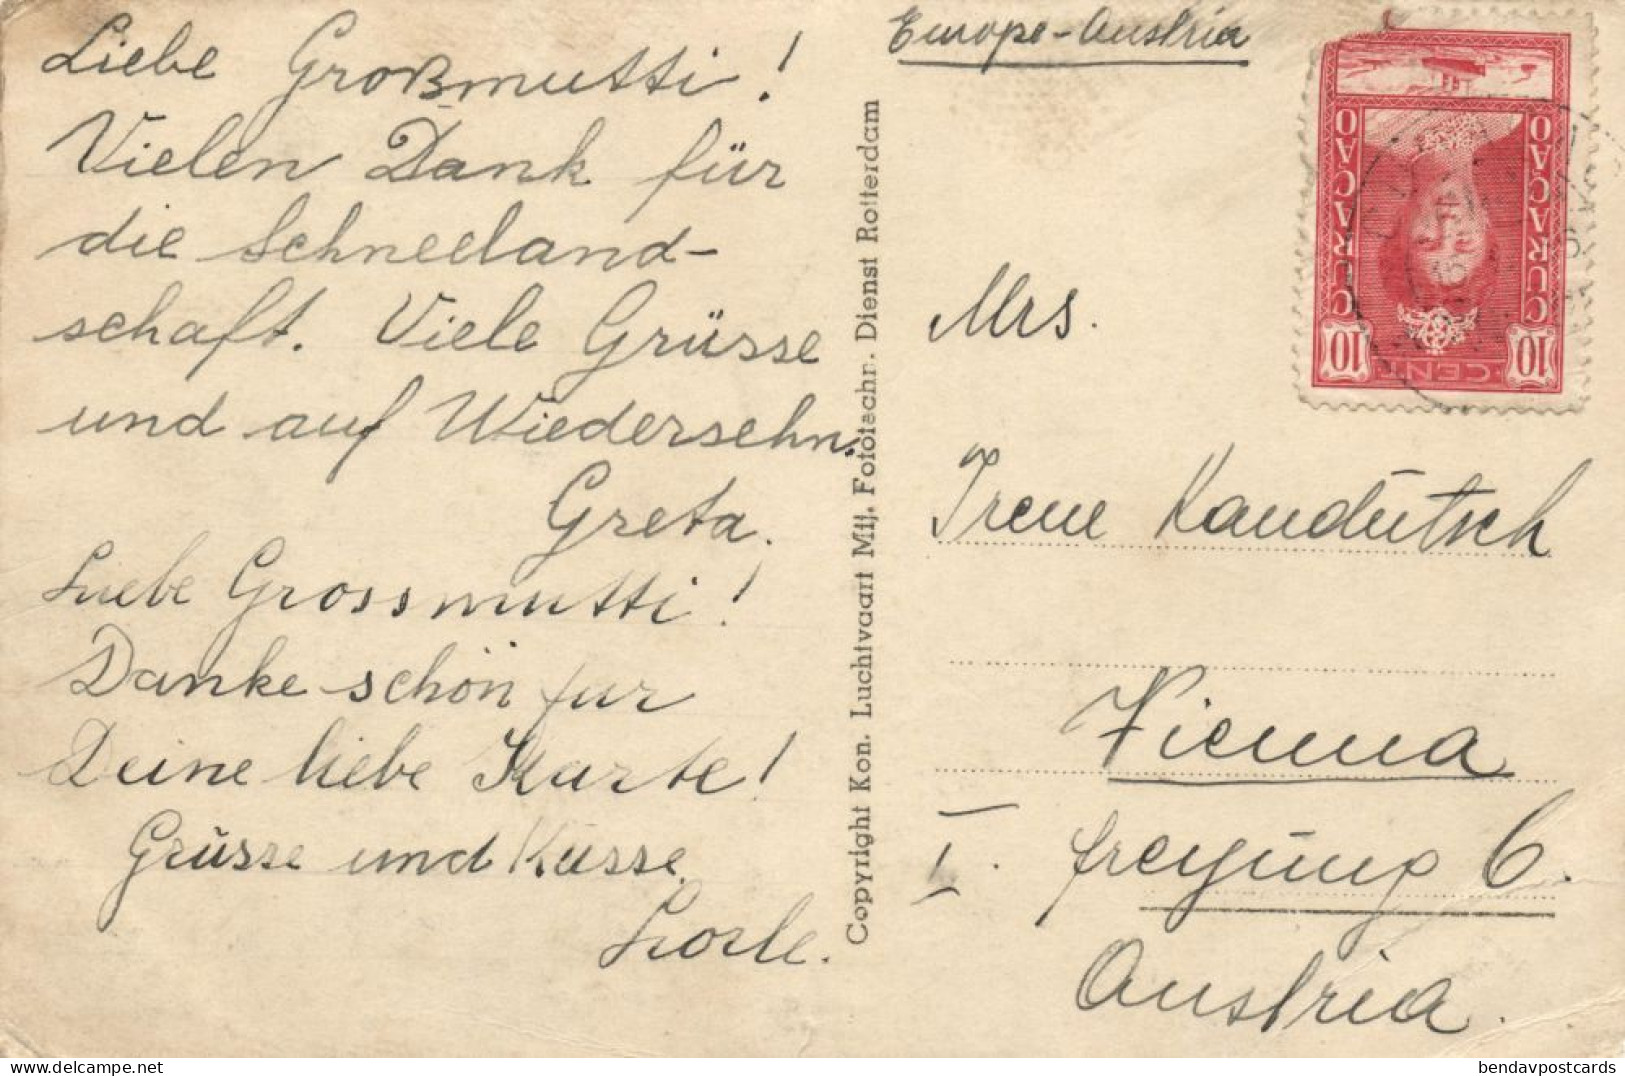 Liebe Großmutti!
Vielen Dank für
die Schneeland-
schaft. Viele Grüsse
und auf Wiedersehn.
Greta.
Liebe Grossmutti!
Danke schön fur
Deine liebe Karte!
Grüsse und Küsse.
Lorle.
Copyright Kon. Luchtvaart Mij. Fototechn. Dienst Rotterdam
Europe-Austria
CURAÇAO
CURAÇAO
10
CENT
10
Mrs.
Irene Kandutsch
Vienna
I. Freyung 6.
Austria.
bendavpostcards